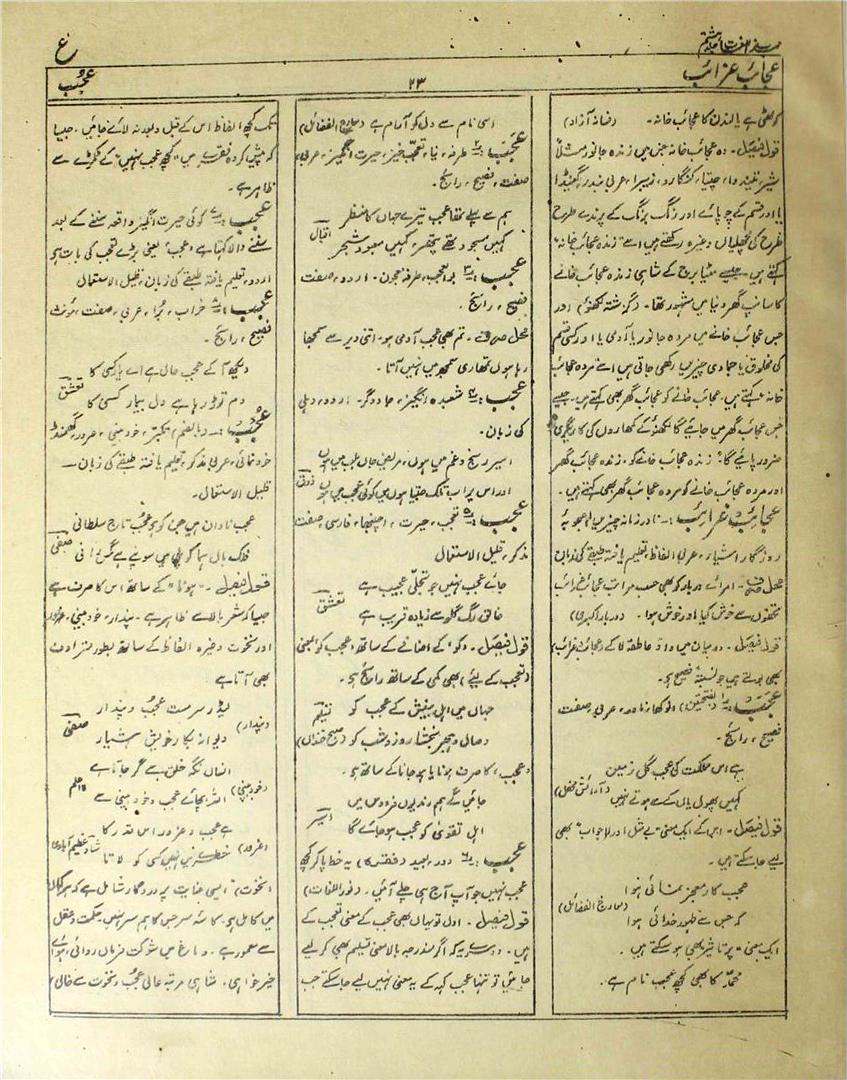 ع
مہذب اللغات جلد ہشتم
عجائب غرائب
۲۳
عجب
کوٹھی ہے یا لندن کا عجائب خانہ۔ (فسانۂ آزاد)
قول فیصل۔ وہ عجائب خانہ جس میں زندہ جانور مثلاً
شیر، تیندوا، چیتا، گلدار، زیبرا، عربی بندر، گینڈا
یا اور قسم کے چوپائے اور رنگ برنگ کے پرندے طرح
طرح کی مچھلیاں وغیرہ رکھتے ہیں اسے "زندہ عجائب خانہ"
کہتے ہیں۔ جیسے مٹیا برج کے شاہی زندہ عجائب خانے
کا سانپ گھر دنیا میں مشہور تھا۔ (گزشتہ لکھنؤ) اور
جس عجائب خانے میں مردہ جانور یا آدمی یا اور کسی قسم
کی مخلوق یا جمادی چیزیں رکھی جاتی ہیں اسے مردہ عجائب
خانہ کہتے ہیں۔ عجائب خانے کو عجائب گھر بھی کہتے ہیں۔ جیسے
جس عجائب گھر میں جائیے گا لکھنؤ کے کمہاروں کی کاریگری
ضرور پائیے گا۔ زندہ عجائب خانے کو زندہ عجائب گھر
اور مردہ عجائب خانے کو مردہ عجائب گھر بھی کہتے ہیں۔
عجائب غرائب :۔ نادر زمانہ چیزیں، اعجوبۂ
روزگار اشیاء۔ عربی الفاظ، تعلیم یافتہ طبقے کی زبان
محل صرف۔ امرائے دربار کو بھی حسب مراتب عجائب غرائب
تحفوں سے خوش کیا اور خوش ہوا۔ (دربار اکبری)
قول فیصل۔ درمیان میں واو عاطفہ لا کے (عجائب و غرائب)
بھی بولتے ہیں جو نسبتاً فصیح ہے۔
عَجَب :۔ (بالفتحتین) انوکھا، نادر، عربی، صفت
فصیح، رائج۔
ہے اس مملکت کی عجب گل زمین
کہیں پھول یاں کے سے ہوتے نہیں (آرائش محفل)
قول فیصل۔ اس کے ایک معنی "بے مثل اور لاجواب" بھی
لیے جا سکتے ہیں۔
عجب کار معجز نمائی ہوا
کہ جس سے ظہور خدائی ہوا (معارج الفضائل)
ایک معنی "پُر تاثیر بھی ہو سکتے ہیں۔
محمدؐ کا بھی کچھ عجب نام ہے۔
اسی نام سے دل کو آرام ہے (معارج الفضائل)
عَجَب :۔ طرفہ، نیا، تعجب خیز، حیرت انگیز، عربی
صفت، فصیح، رائج۔
ہم سے پہلے تھا عجب تیرے جہاں کا منظر
کہیں مسجود تھے پتھر، کہیں معبود شجر اقبالؔ
عجب :۔ بوالعجب، طرفہ معجون۔ اردو، صفت
فصیح، رائج۔
محل صرف۔ تم بھی عجب آدمی ہو۔ اتنی دیر سے سمجھا
رہا ہوں تمھاری سمجھ میں نہیں آتا۔
عجب :۔ شعبدہ انگیز، جادوگر۔ اردو، دہلی
کی زبان۔
اسیر رنج و غم میں ہوں، مریض جاں بلب میں ہوں
اور اس پر اب تلک جیتا ہوں میں کوئی عجب میں ہوں ذوقؔ
عجب :۔ تعجب، حیرت، اچنبھا، فارسی، صفت
مذکر، قلیل الاستعمال
جائے عجب نہیں جو تجلّی عجیب ہے
خالق رگ گلو سے زیادہ قریب ہے تعشقؔ
قول فیصل۔ "کو" کے اضافے کے ساتھ، (عجب کو) بمعنی
(تعجب کے لیے) بھی کمی کے ساتھ رائج ہے۔
جہاں میں اہل بینش کے عجب کو
وصال و ہجر بخشا روز و شب کو (صبح خنداں) نسیمؔ
(عجب) کا صرف ہونا یا ہو جانا کے ساتھ ہے۔
جائیں گے ہم رندیوں فردوس میں
اہل تقویٰ کو عجب ہو جائے گا اسیرؔ
عجب :۔ دور، بعید (فقہ) یہ خط پا کر کچھ
عجب نہیں جو آپ آج ہی چلے آئیں۔ (نور اللغات)
قول فیصل۔ اول تو یہاں بھی عجب کے معنی تعجب کے
ہیں۔ دوسرے یہ کہ اگر مندرجہ بالا معنی تسلیم بھی کر لیے
جائیں تو تنہا عجب کہہ کے یہ معنی نہیں لیے جا سکتے جب
تک کچھ الفاظ اس کے قبل و بعد نہ لائے جائیں۔ جیسا
کہ پیش کردہ فقرے میں "کچھ عجب نہیں" کے ٹکڑے سے
ظاہر ہے۔
عجب :۔ کوئی حیرت انگیز واقعہ سننے کے بعد
سننے والا کہتا ہے "عجب" یعنی بڑے تعجب کی بات ہے
اردو، تعلیم یافتہ طبقے کی زبان، قلیل الاستعمال
عجب :۔ خراب، بُرا، عربی، صفت، مؤنث
فصیح، رائج۔
دیکھ آ کے عجب حال ہے اے یار کسی کا
دم توڑ رہا ہے دل بیمار کسی کا تعشقؔ
عُجب :۔ (بالضم) تکبّر، خود بینی، غرور، گھمنڈ
خود نمائی، عربی، مذکر، تعلیم یافتہ طبقے کی زبان۔
قلیل الاستعمال۔
عجب ناداں ہیں جن کو ہے عُجب تاج سلطانی
فلک بال ہما کو پل میں سونپے ہے مگس رانی صفیؔ
قول فیصل۔ "ہونا" کے ساتھ اس کا صرف ہے
جیسا کہ شعر بالا سے ظاہر ہے۔ پندار، خود بینی، غرور
اور نخوت وغیرہ الفاظ کے ساتھ بطور مترادف
بھی آتا ہے
(پندار) لیڈر سرمست عجب و پندار
دیوانہ بکار خویش ہشیار صفیؔ
(خود بینی) انساں نگہ خلق سے گر جاتا ہے
اللہ بچائے عجب و خود بینی سے
(غرور) ہے عجب و غرور اس قدر کا
خطرے میں نہیں کسی کو لاتا شادؔ عظیم آبادی
(نخوت) ایسی عنایت پروردگار شامل ہے کہ ہر کمال
میں کامل ہے۔ کاسۂ سر جس کا ہم سر نہیں، حکمت و عقل
سے معمور ہے۔ دماغ میں شوکت فرماں روائی، ہوائے
خیر خواہی، شاہی مرتبہ عالی عُجب و نخوت سے خالی